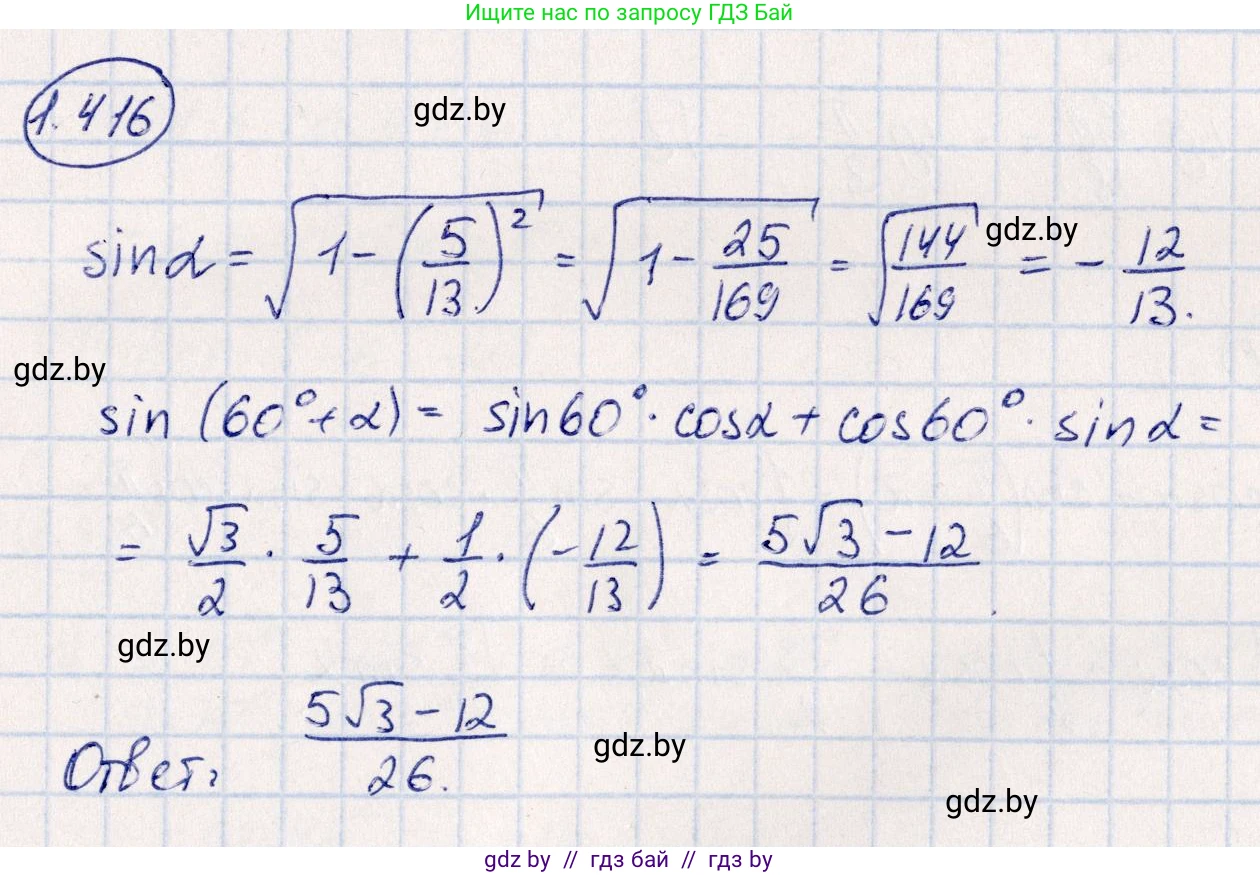 Ищите нас по запросу ГДЗ Бай
1.416
gdz.by
sinα = √(1 - (5/13)²) = √(1 - 25/169) = √(144/169) = - 12/13.
gdz.by
gdz.by
sin (60° + α) = sin60° · cosα + cos60° · sinα =
= √3/2 · 5/13 + 1/2 · (- 12/13) = (5√3 - 12)/26.
gdz.by
Ответ: (5√3 - 12)/26.
gdz.by
gdz.by
gdz by // гдз бай // гдз by